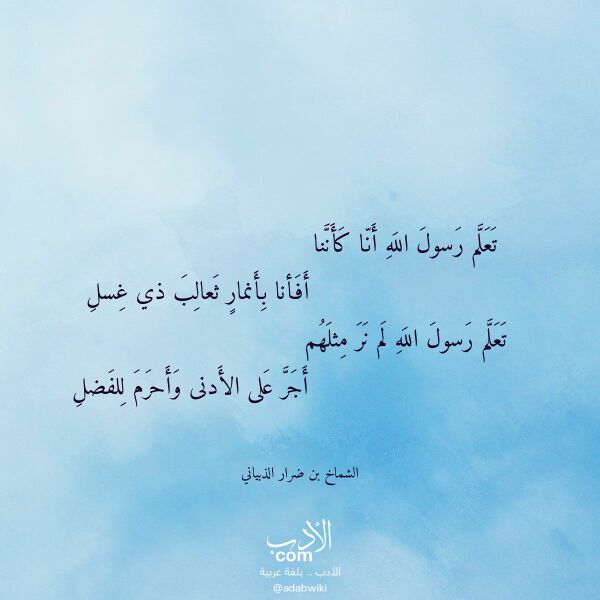 تَعَلَّم رَسولَ اللَهِ أَنّا كَأَنَّنا
أَفَأنا بِأَنمارٍ ثَعالِبَ ذي غِسلِ
تَعَلَّم رَسولَ اللَهِ لَم نَرَ مِثلَهُم
أَجَرَّ عَلى الأَدنى وَأَحرَمَ لِلفَضلِ
الشماخ بن ضرار الذبياني
الأدب
com
الأدب .. بلغة عربية
@adabwiki